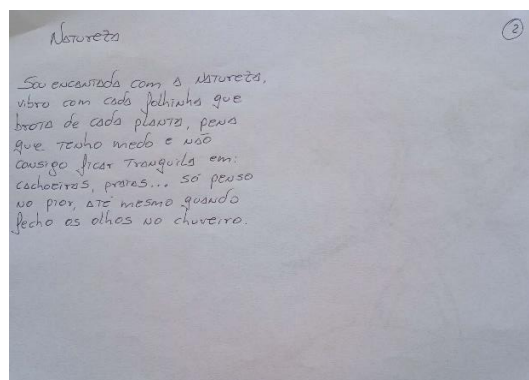 Natureza
2
Sou encantada com a natureza,
vibro com cada folhinha que
brota de cada planta, pena
que tenho medo e não
consigo ficar tranquila em:
cachoeiras, praias... só penso
no pior, até mesmo quando
fecho os olhos no chuveiro.